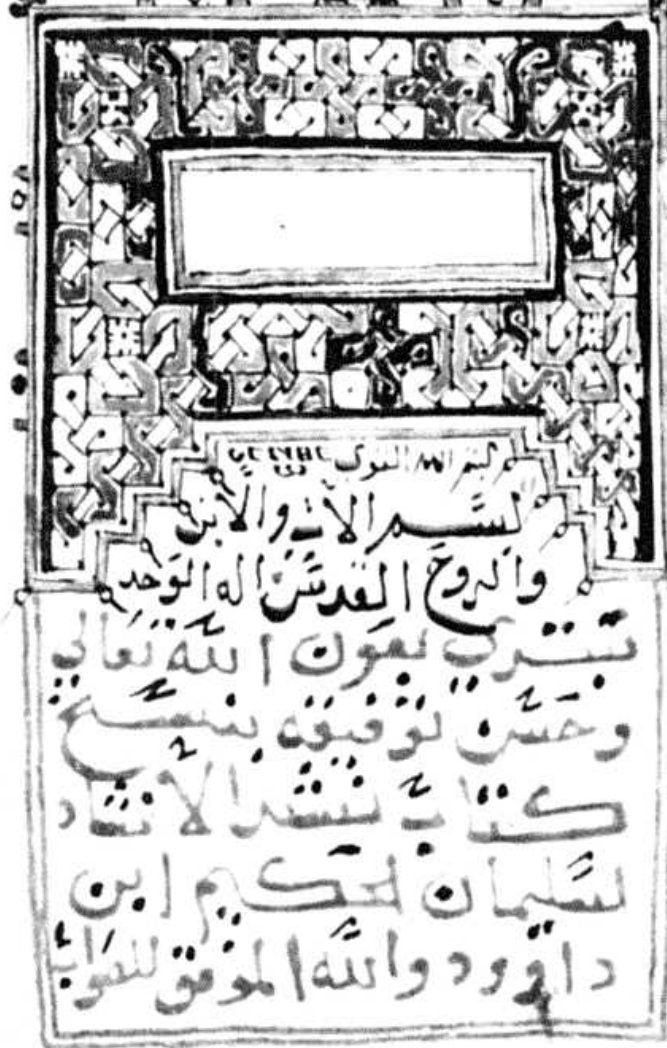 بسم الله القوي
بسم الاب والابن
والروح القدس اله الوحد
نبتدي بعون الله تعالي
وحسن توفيقه بنسخ
كتاب نشد الانشاد
لسليمان لحكيم ابن
داوود والله الموفق للصواب